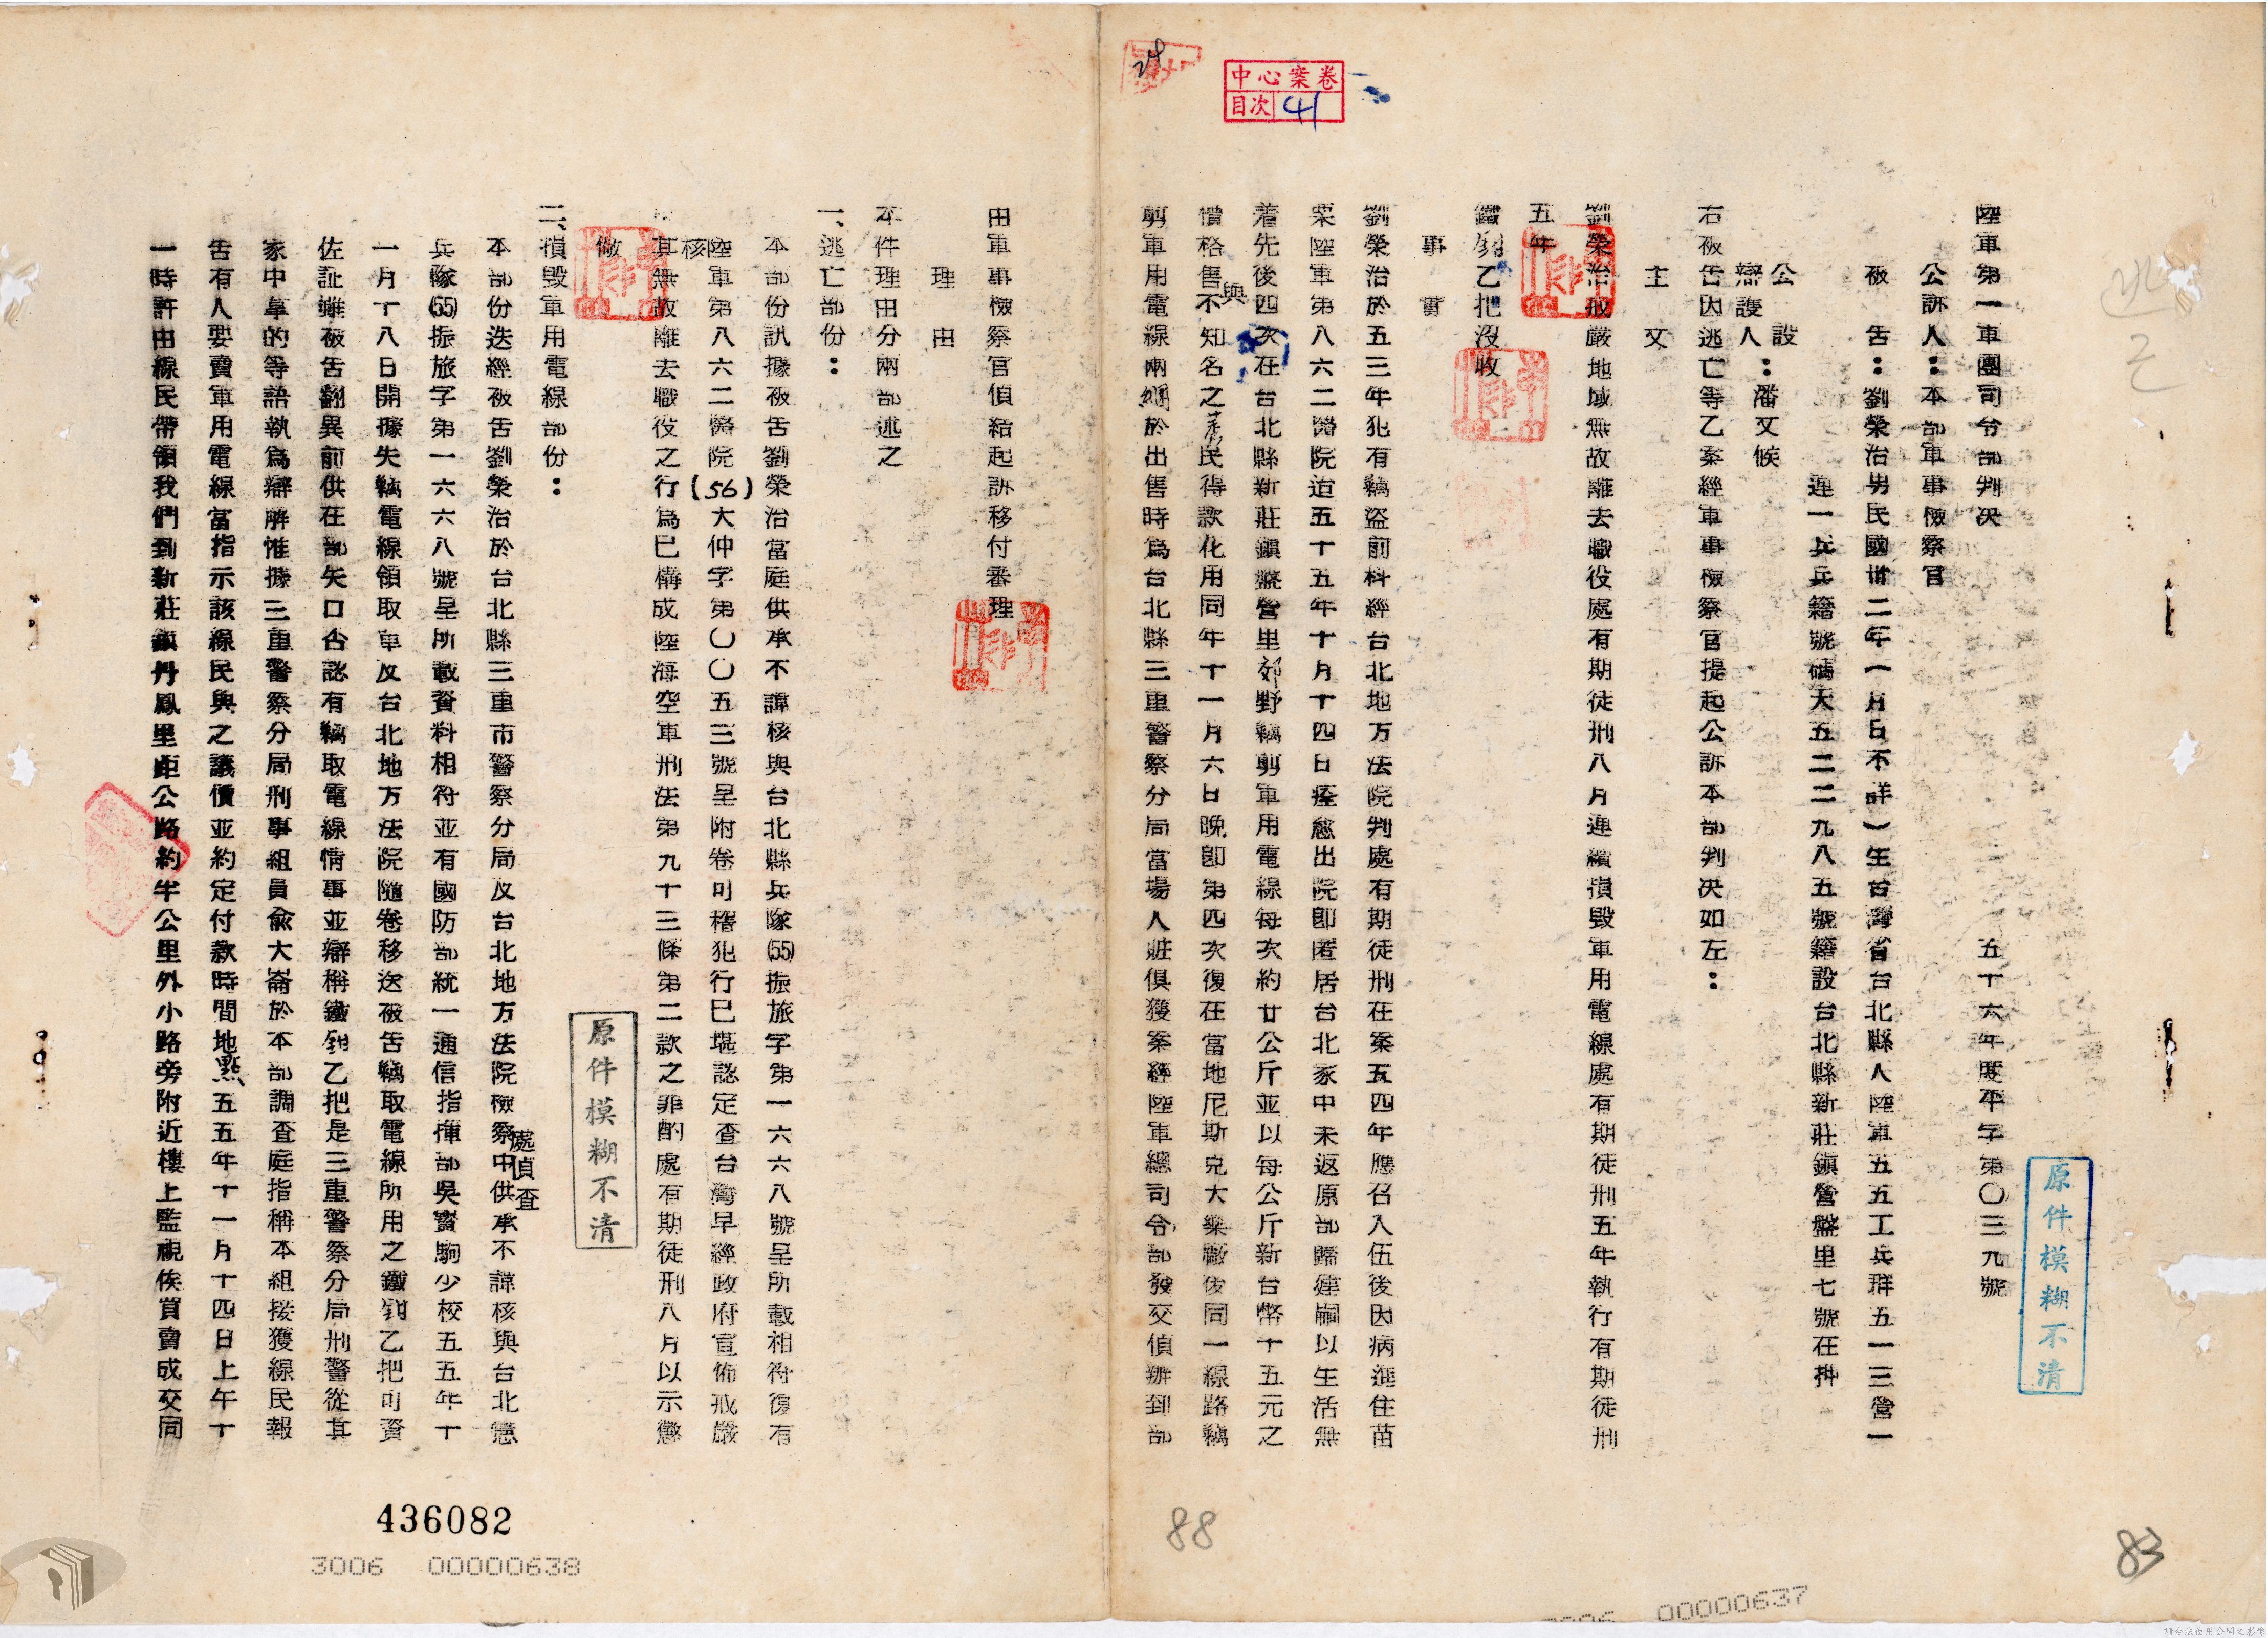 陸軍第一軍團司令部判決
五十六年度平字第〇三九號
公訴人：本部軍事檢察官
被告：劉榮治男民國卅二年一月日不詳）生台灣省台北縣人陸軍五五工兵群五一三營一
連一兵兵籍號碼天五二二九八五號籍設台北縣新莊鎮營盤里七號在押
公設
辯護人：潘文候
右被告因逃亡等乙案經軍事檢察官提起公訴本部判決如左：
主文
劉榮治戒嚴地域無故離去職役處有期徒刑八月連續損毀軍用電線處有期徒刑五年執行有期徒刑
五年
鐵鉗乙把沒收
事實
劉榮治於五三年犯有竊盜前科經台北地方法院判處有期徒刑在案五四年應召入伍後因病進住苗
栗陸軍第八六二醫院迨五十五年十月十四日痊愈出院即匿居台北家中未返原部歸建嗣以生活無
着先後四次在台北縣新莊鎮盤營里郊野竊剪軍用電線每次約廿公斤並以每公斤新台幣十五元之
價格售與不知名之
民得款化用同年十一月六日晚即第四次復在當地尼斯克大樂廠後同一線路竊
剪軍用電線兩綑於出售時為台北縣三重警察分局當場人贓俱獲案經陸軍總司令部發交偵辦到部
由軍事檢察官偵結起訴移付審理
理由
本件理由分兩部述之
一、逃亡部份：
本部份訊據被告劉榮治當庭供承不諱核與台北縣兵隊(55)振旅字第一六六八號呈所載相符復有
陸軍第八六二醫院(56)大仲字第〇〇五三號呈附卷可稽犯行已堪認定查台灣早經政府宣佈戒嚴
核其無故離去職役之行為已構成陸海空軍刑法第九十三條第二款之罪酌處有期徒刑八月以示懲
儆
二、損毀軍用電線部份：
本部份迭經被告劉榮治於台北縣三重市警察分局及台北地方法院檢察處偵查中供承不諱核與台北憲
兵隊(55)振旅字第一六六八號呈所載資料相符並有國防部統一通信指揮部吳寶駒少校五五年十
一月十八日開據失竊電線領取單及台北地方法院隨卷移送被告竊取電線所用之鐵鉗乙把可資
佐証雖被告翻異前供在部矢口否認有竊取電線情事並辯稱鐵鉗乙把是三重警察分局刑警從其
家中拿的等語執為辯解惟據三重警察分局刑事組員俞大崙於本部調查庭指稱本組接獲線民報
告有人要賣軍用電線當指示該線民與之議價並約定付款時間地點五五年十一月十四日上午十
一時許由線民帶領我們到新莊鎮丹鳳里距公路約半公里外小路旁附近樓上監視俟買賣成交同
中心案卷
目次 41
原件模糊不清
原件模糊不清
436082
3006 00000638
3006 00000637
88
83
請合法使用公開之影像